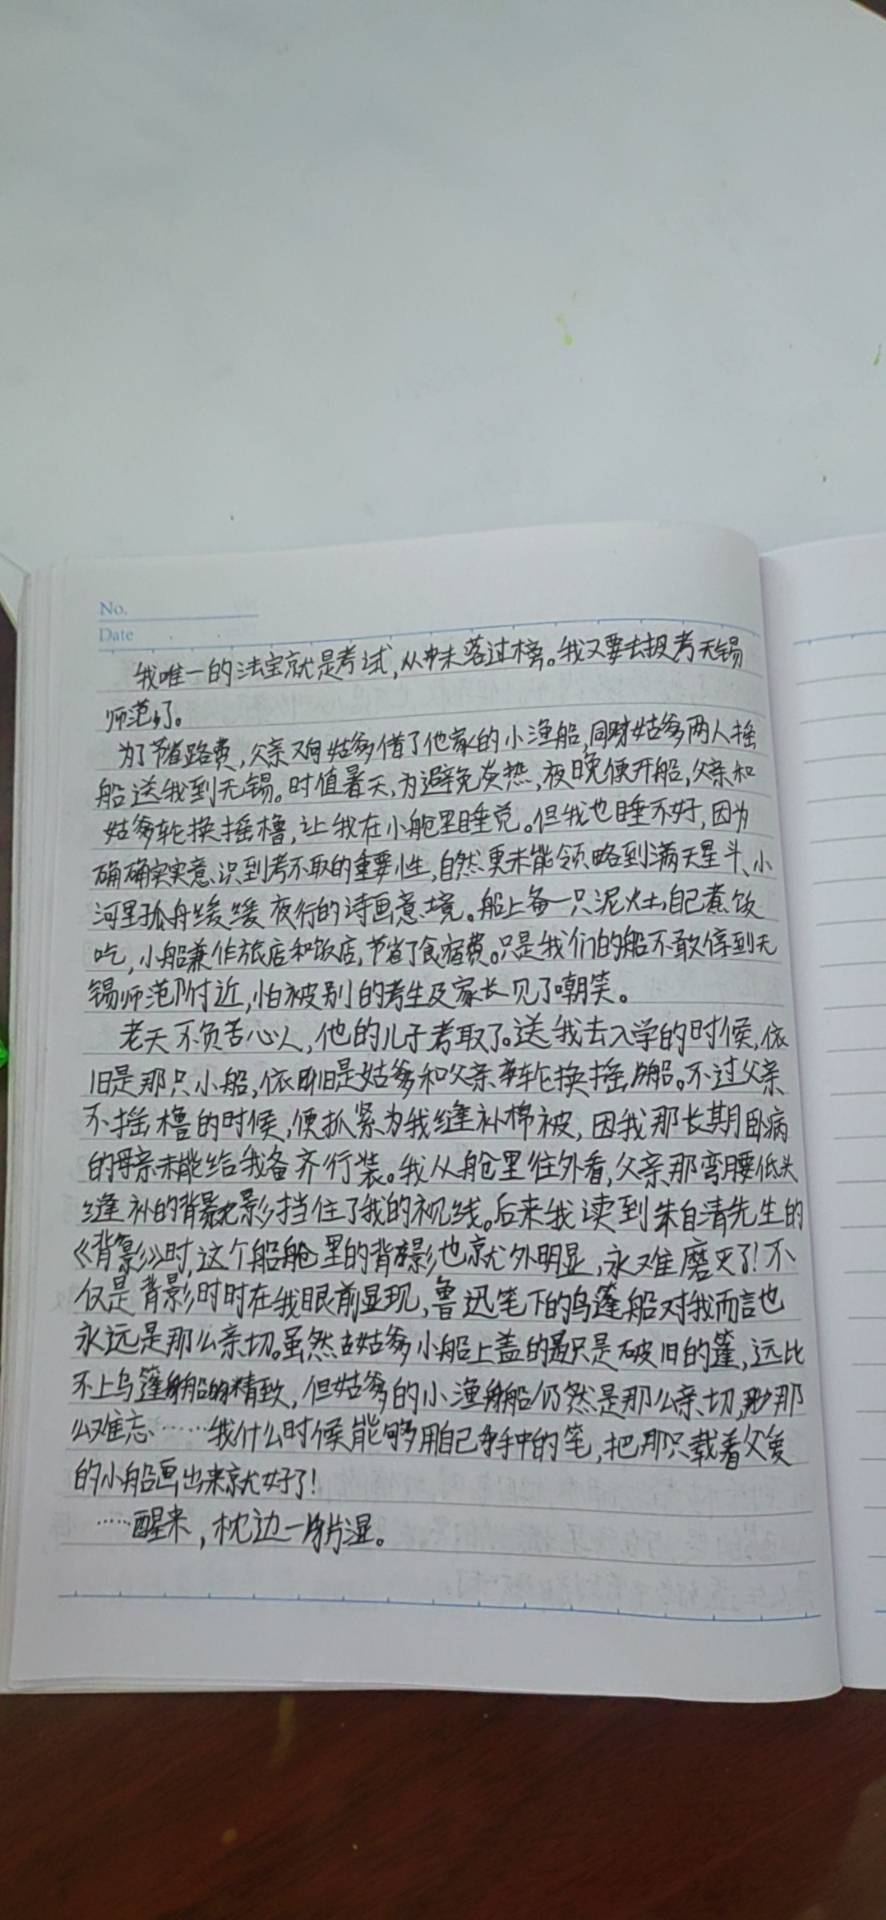 No.
Date
我唯一的法宝就是考试,从未落过榜。我又要去投考无锡
师范了。
为了节省路费,父亲又向姑爹借了他家的小渔船,同姑爹两人摇
船送我到无锡。时值暑天,为避免炎热,夜晚便开船,父亲和
姑爹轮换摇橹,让我在小舱里睡觉。但我也睡不好,因为
确确实实意识到考不取的重要性,自然更未能领略到满天星斗、小
河里孤舟缓缓夜行的诗画意境。船上备一只泥灶,自己煮饭
吃,小船兼作旅店和饭店,节省了食宿费。只是我们的船不敢停到无
锡师范附近,怕被别的考生及家长见了嘲笑。
老天不负苦心人,他的儿子考取了。送我去入学的时候,依
旧是那只小船,依旧是姑爹和父亲轮换摇船。不过父亲
不摇橹的时候,便抓紧为我缝补棉被,因我那长期卧病
的母亲未能给我备齐行装。我从舱里往外看,父亲那弯腰低头
缝补的背影挡住了我的视线。后来我读到朱自清先生的
《背影》时,这个船舱里的背影也就外明显,永难磨灭了!不
仅是背影时时在我眼前显现,鲁迅笔下的乌篷船对我而言也
永远是那么亲切。虽然姑爹小船上盖的只是破旧的篷,远比
不上乌篷船的精致,但姑爹的小渔船仍然是那么亲切,那
么难忘……我什么时候能够用自己手中的笔,把那只载着父爱
的小船画出来就好了!
……醒来,枕边一片湿。